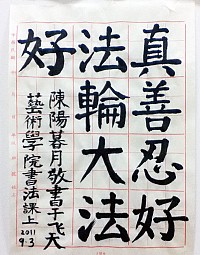 真善忍好
法輪大法
好
陳陽暮月敬書于飛天
藝術學院書法課上
2011
9.3